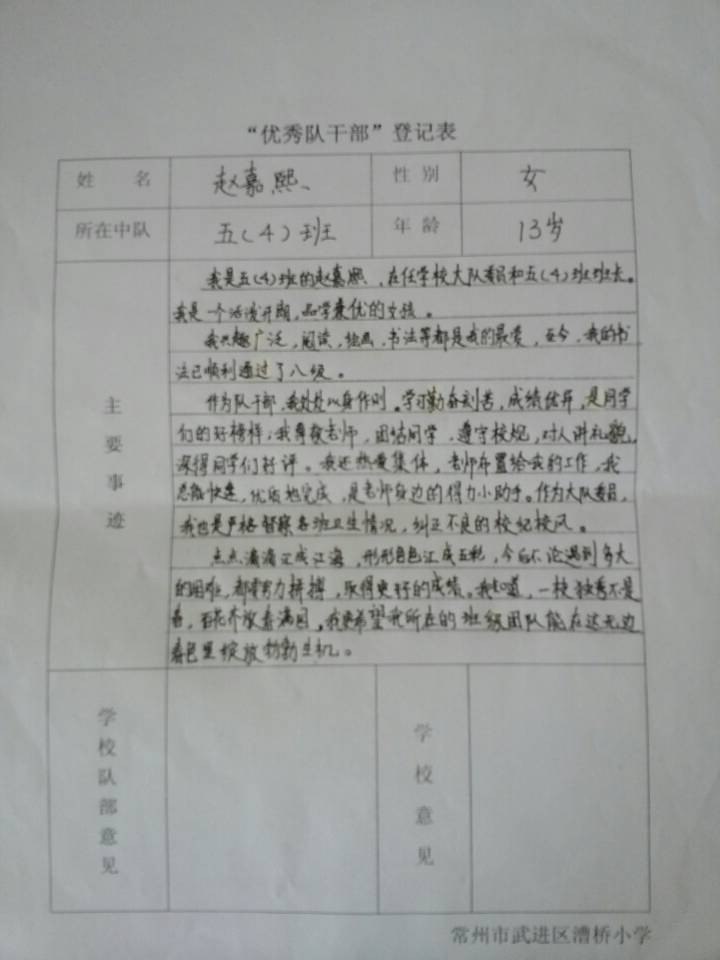 “优秀队干部”登记表
姓 名 赵嘉熙 性 别 女
所在中队 五(4)班 年 龄 13岁
主要事迹
我是五(4)班的赵嘉熙，在任学校大队委员和五(4)班班长。
我是一个活泼开朗，品学兼优的女孩。
我兴趣广泛，阅读，绘画，书法等都是我的最爱，至今，我的书
法已顺利通过了八级。
作为队干部，我处处以身作则。学习勤奋刻苦，成绩优异，是同学
们的好榜样；我尊敬老师，团结同学，遵守校规，对人讲礼貌，
深得同学们好评。我还热爱集体，老师布置给我的工作，我
总能快速，优质地完成，是老师身边的得力小助手。作为大队委员，
我也是严格督察各班卫生情况，纠正不良的校纪校风。
点点滴滴汇成江海，形形色色汇成五彩，今后不论遇到多大
的困难，都要努力拼搏，取得更好的成绩。我知道，一枝独秀不是
春，百花齐放春满园，我更希望我所在的班级团队能在这无边
春色里绽放勃勃生机。
学校队部意见
学校意见
常州市武进区漕桥小学